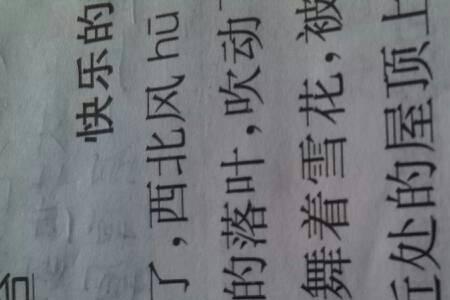 快乐的
了,西北风 hū
的落叶,吹动
舞着雪花,被
近处的屋顶上